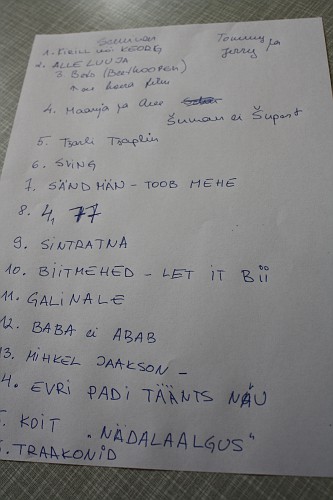 Tommy ja
Jerry
1. KIRILL või KEORG
2. ALLE LUUJA
3. Beis (Beethooven)
4. Maarja ja Ave
Šuman ei Šupert
5. Tsarli Tsaplin
6. SVING
7. SÄNDMÄN - TOOB MEHE
8. 4, 77
9. SINTRATNA
10. BIITMEHED - LET IT BII
11. GALINALE
12. BABA ei ABAB
13. MIHKEL JAAKSON -
4. EVRI PADI TÄÄNTS NÄU
5. KOIT "NÄDALAALGUS"
6. TRAAKONID